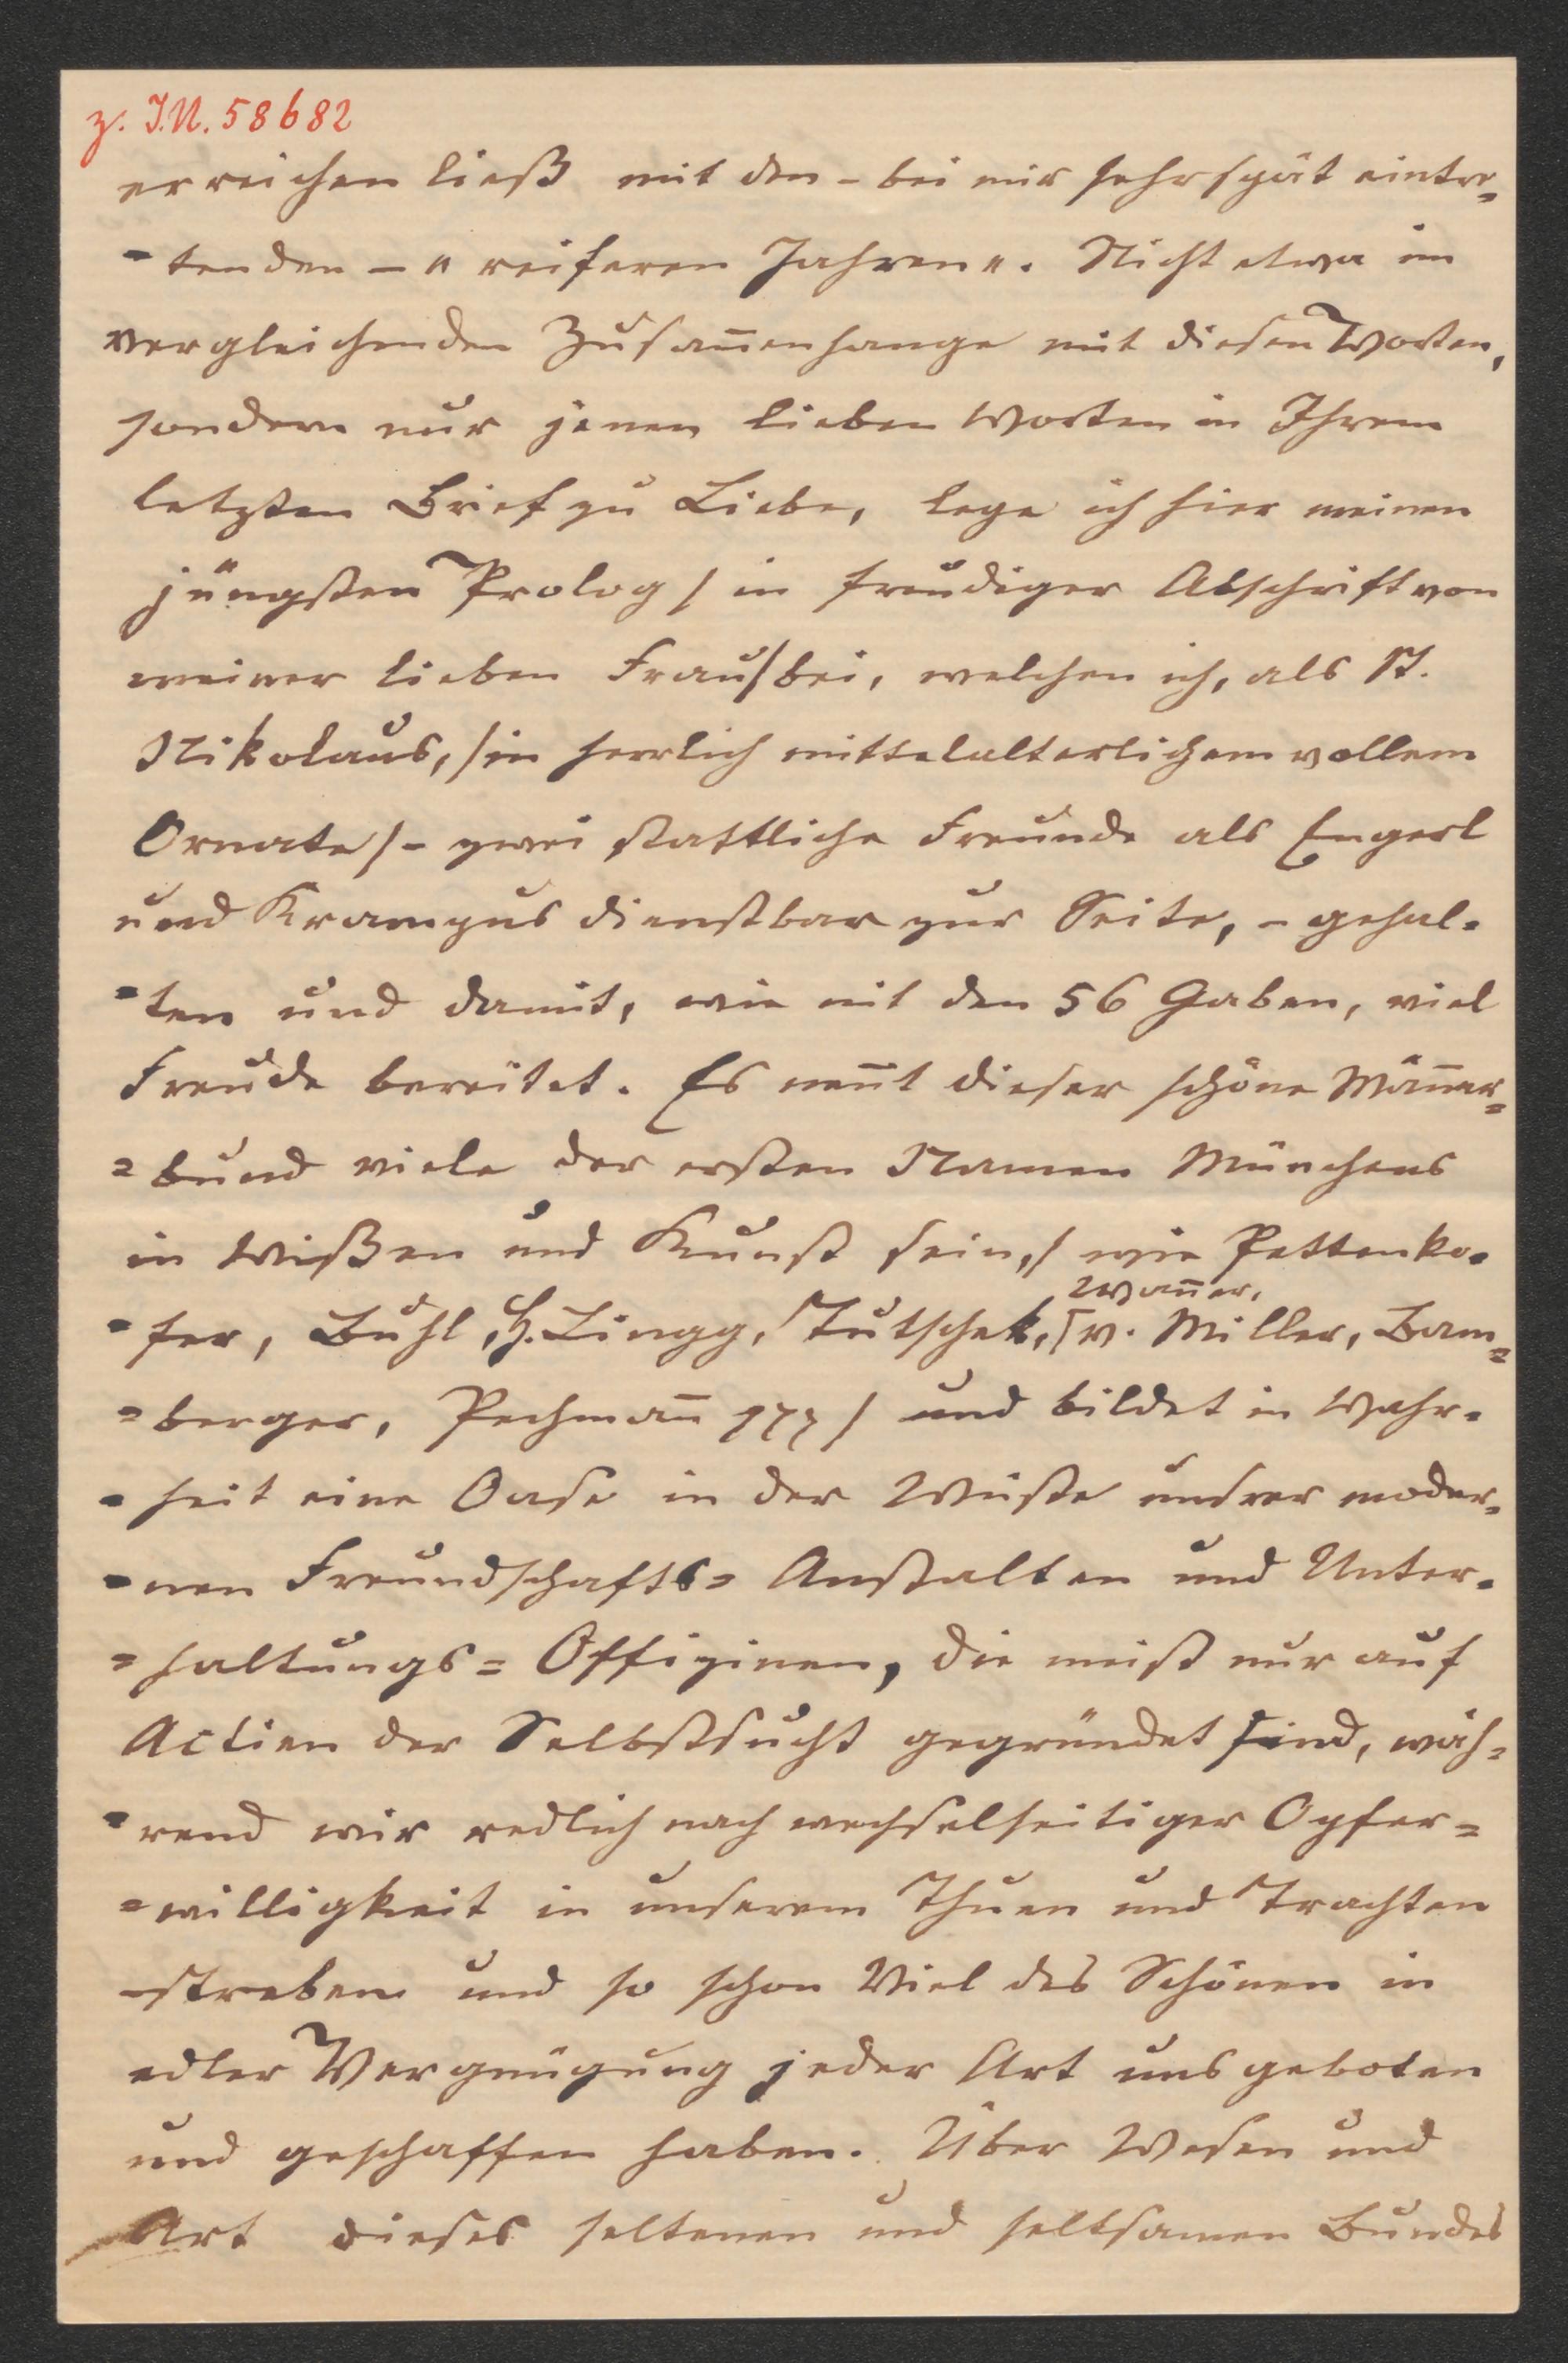 z. I.N. 58682
erreichen ließ mit den – bei mir sehr spät eintre=
=tenden – "reiferen Jahren". Nicht etwa im
vergleichenden Zusam̄enhange mit diesen Worten,
sondern nur jenen lieben Worten in Ihrem
letzten Brief zu Liebe, lege ich hier meinen
jüngsten Prolog / in freudiger Abschrift von
meiner lieben Frau / bei, welchen ich, als St.
Nikolaus, / in herrlich mittelalterlichem vollem
Ornate / – zwei stattliche Freunde als Engerl
und Krampus dienstbar zur Seite, – gehal=
=ten und damit, wie mit den 56 Gaben, viel
Freude bereitet. Es nen̄t dieser schöne Män̄er=
=bund viele der ersten Namen Münchens
in Wißen und Kunst sein, / wie Pettenko=
Wan̄er,
=fer, Buhl, H. Lingg, Tutschek, ⌈v. Miller, Bam=
=berger, Pechman̄ ppp / und bildet in Wahr=
=heit eine Oase in der Wüste unsrer moder=
=nen Freundschafts= Anstalten und Unter=
=haltungs= Offizinen, die meist nur auf
Actien der Selbstsucht gegründet sind, wäh=
=rend wir redlich nach wechselseitiger Opfer=
=willigkeit in unserem Thuen und Trachten
streben und so schon Viel des Schönen in
edler Vergnügung jeder Art uns geboten
und geschaffen haben. Über Wesen und
Art dieses seltenen und seltsamen Bundes